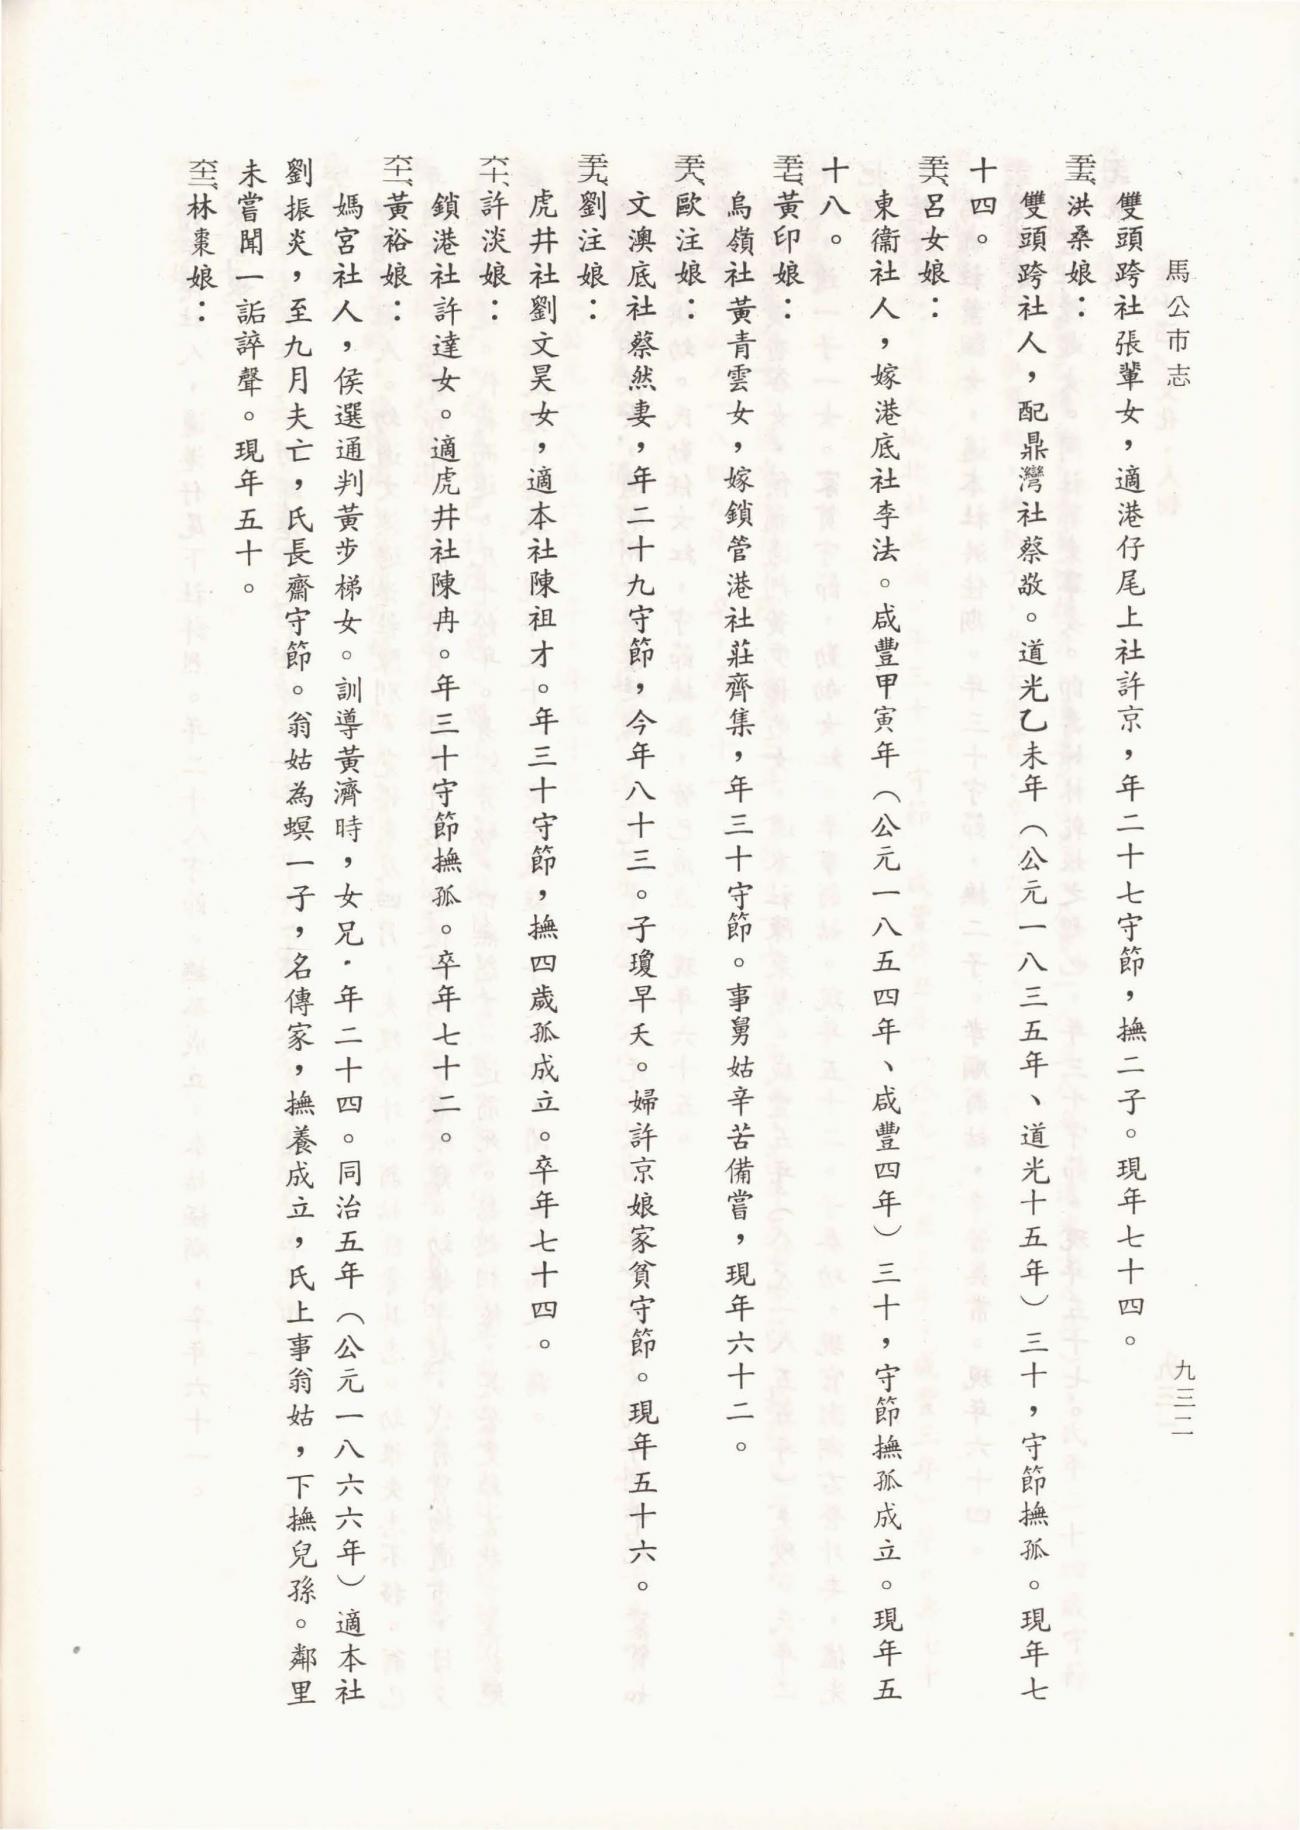 馬公市志
九三二
雙頭跨社張輩女，適港仔尾上社許京，年二十七守節，撫二子。現年七十四。
洪桑娘：
雙頭跨社人，配鼎灣社蔡敬。道光乙未年（公元一八三五年、道光十五年）三十，守節撫孤。現年七
十四。
呂女娘：
東衞社人，嫁港底社李法。咸豐甲寅年（公元一八五四年、咸豐四年）三十，守節撫孤成立。現年五
十八。
黃印娘：
烏嶺社黃青雲女，嫁鎖管港社莊齊集，年三十守節。事舅姑辛苦備嘗，現年六十二。
歐注娘：
文澳底社蔡然妻，年二十九守節，今年八十三。子瓊早夭。婦許京娘家貧守節。現年五十六。
劉注娘：
虎井社劉文昊女，適本社陳祖才。年三十守節，撫四歲孤成立。卒年七十四。
許淡娘：
鎖港社許達女。適虎井社陳冉。年三十守節撫孤。卒年七十二。
黃裕娘：
媽宮社人，侯選通判黃步梯女。訓導黃濟時，女兄．年二十四。同治五年（公元一八六六年）適本社
劉振炎，至九月夫亡，氏長齋守節。翁姑為螟一子，名傳家，撫養成立，氏上事翁姑，下撫兒孫。鄰里
未嘗聞一詬誶聲。現年五十。
林棗娘：